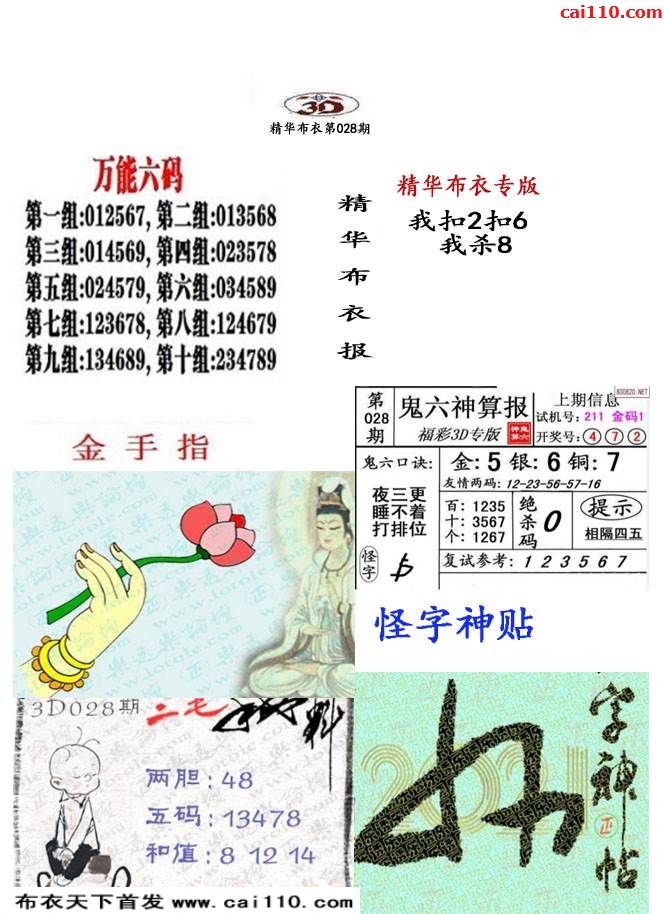 cai110.com
3D
精华布衣第028期
万能六码
第一组:012567, 第二组:013568
第三组:014569, 第四组:023578
第五组:024579, 第六组:034589
第七组:123678, 第八组:124679
第九组:134689, 第十组:234789
精华布衣报
精华布衣专版
我扣2扣6
我杀8
金手指
800820.NET
第028期
鬼六神算报
福彩3D专版
上期信息
试机号: 211 金码1
开奖号: 4 7 2
鬼六口诀:
夜三更
睡不着
打排位
金: 5 银: 6 铜: 7
友情两码: 12-23-56-57-16
百: 1235
十: 3567
个: 1267
绝杀码 0
提示
相隔四五
怪字
复试参考: 1 2 3 5 6 7
怪字神贴
3D028期
二毛
两胆: 48
五码: 13478
和值: 8 12 14
2021
字神帖
布衣天下首发 www.cai110.com